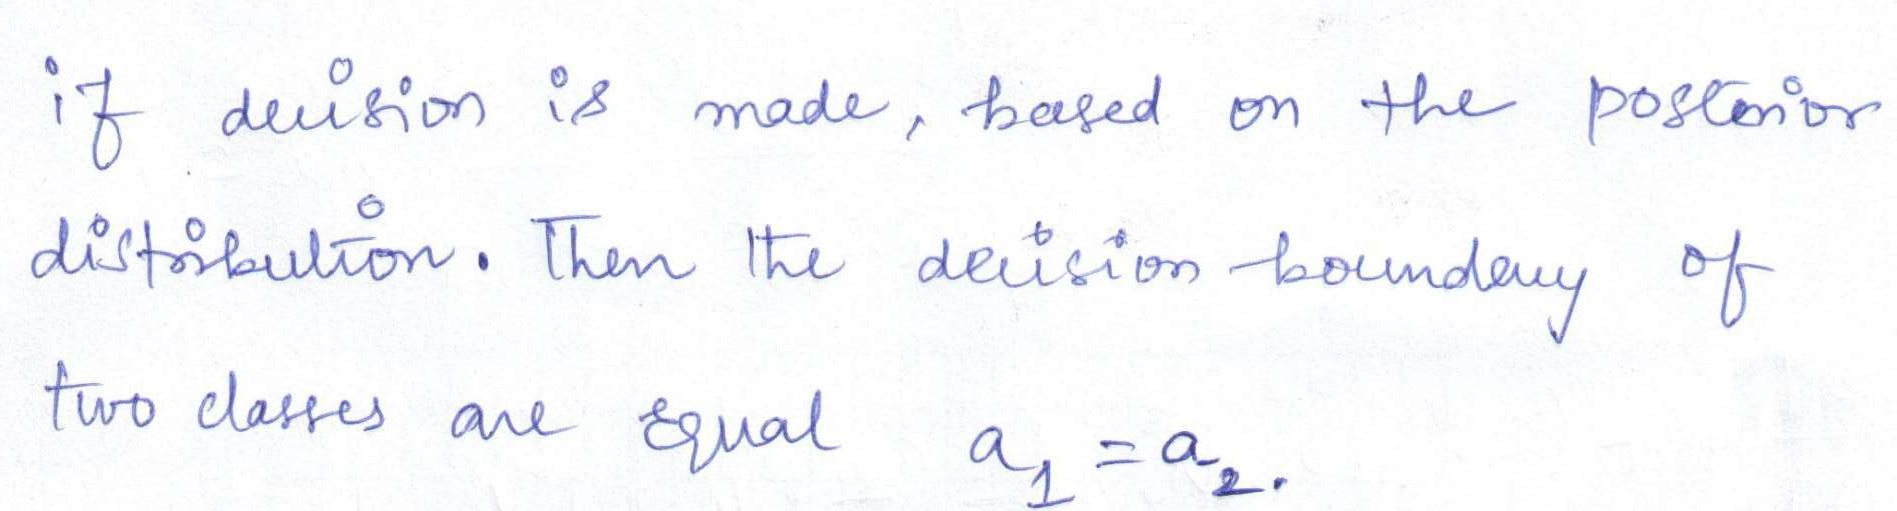 if decision is made, based on the posterior
distribution. Then the decision boundary of
two classes are equal a₁ = a₂.